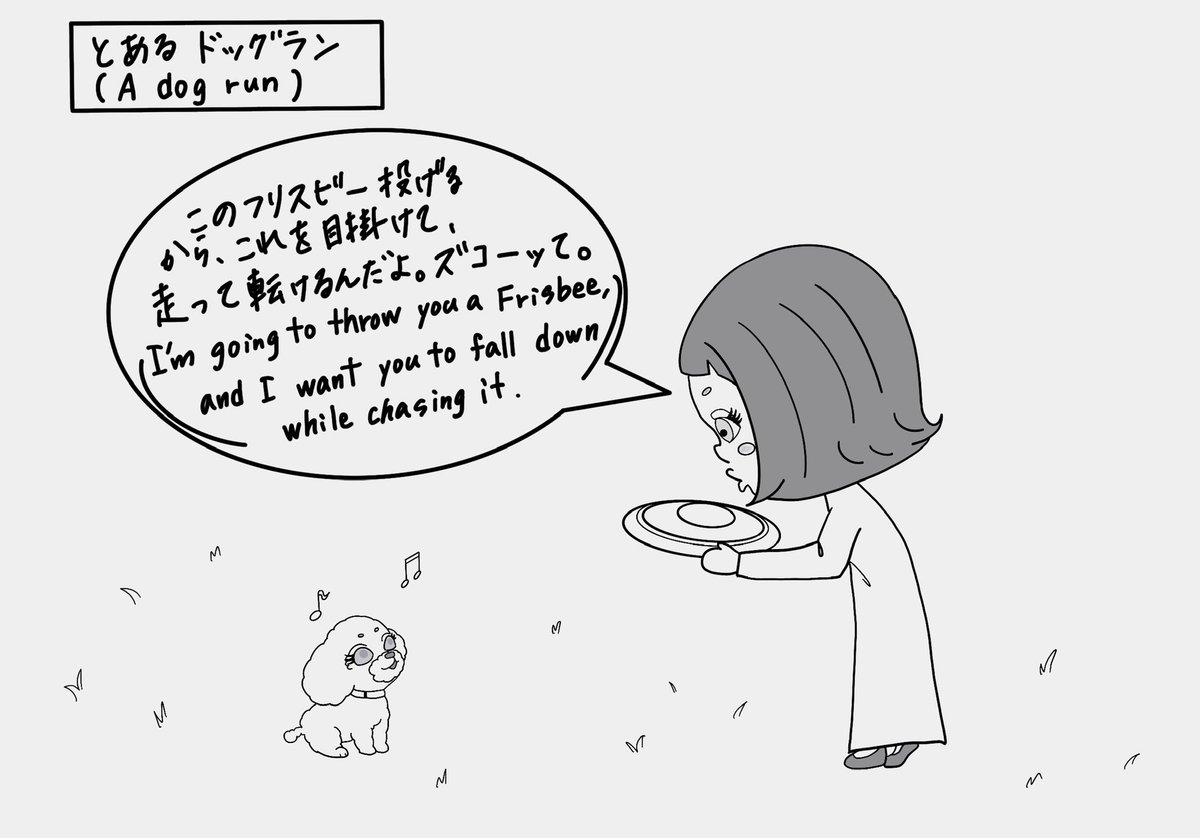 とある ドッグラン
(A dog run)
このフリスビー投げる
から、これを目掛けて、
走って転けるんだよ。ズコーッて。
I'm going to throw you a Frisbee,
and I want you to fall down
while chasing it.